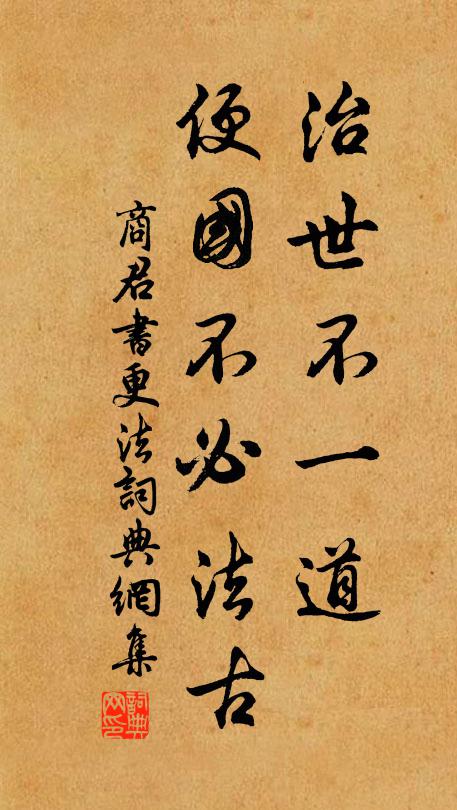 治世不一道
便國不必法古
商君書更法詞典網集
詞典
网印